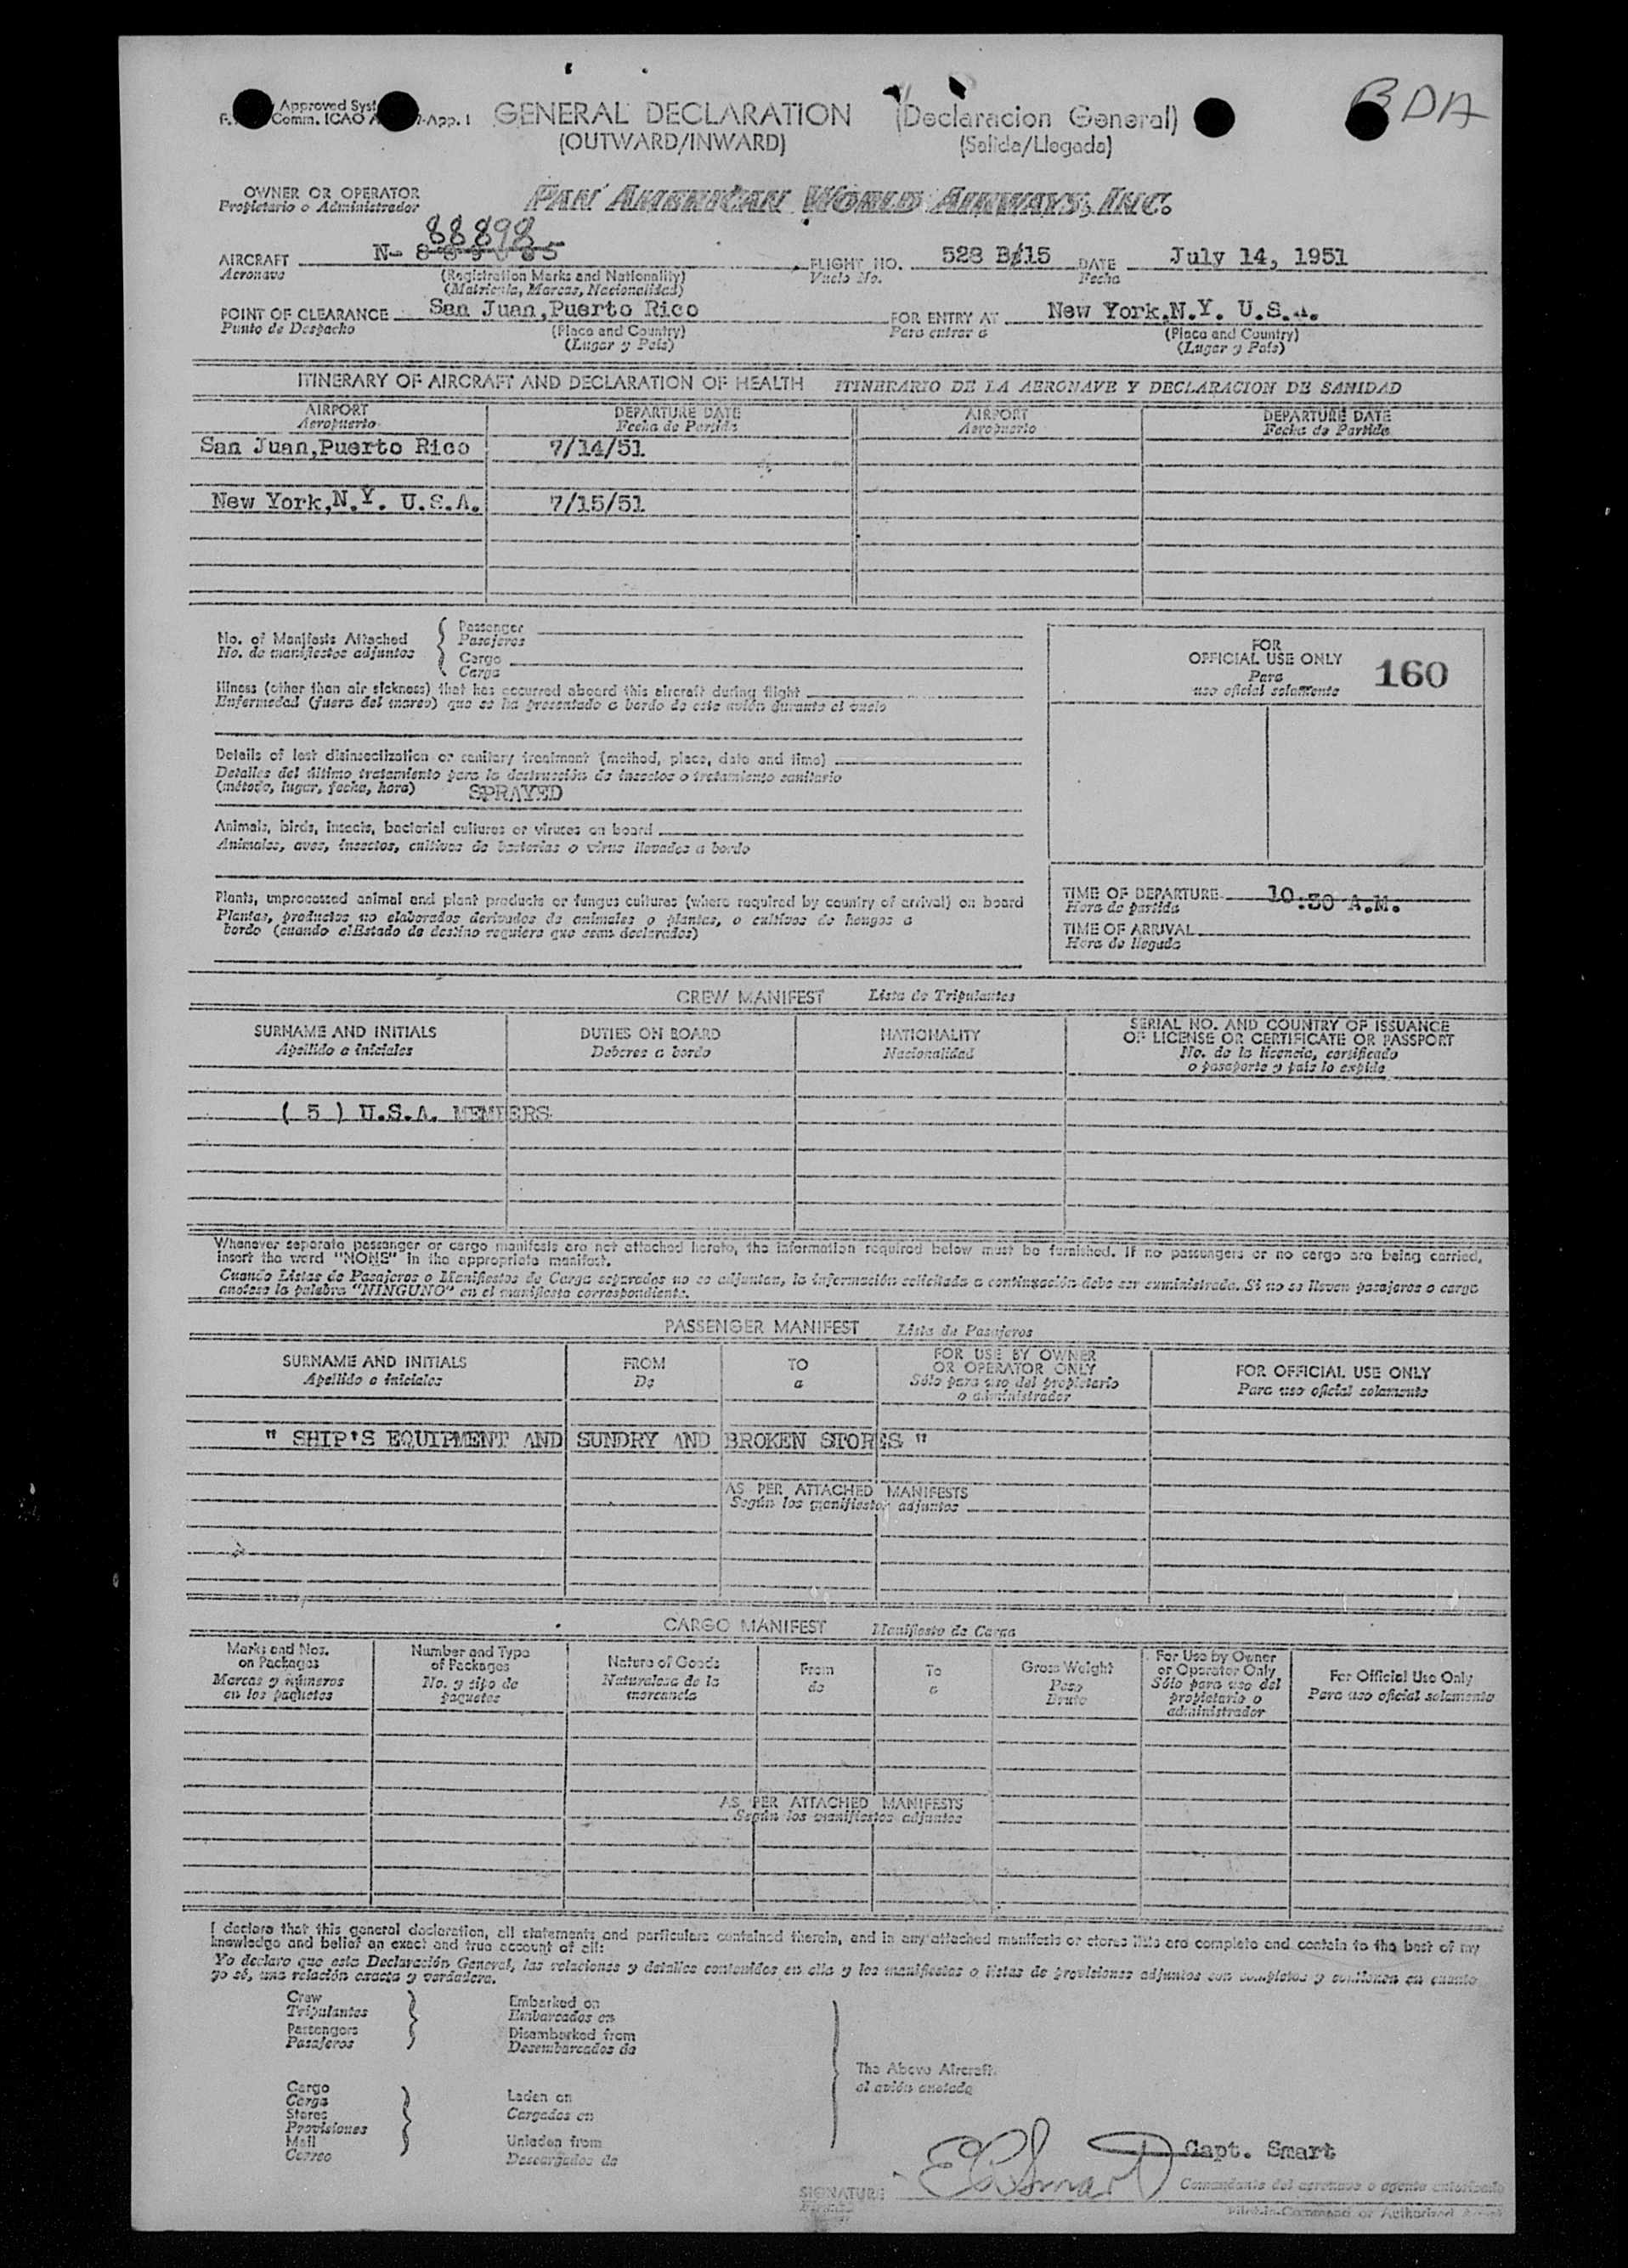 BDA
Approved Syst
Comm. ICAO A -App. 1
GENERAL DECLARATION (Declaracion General)
(OUTWARD/INWARD) (Salida/Llegada)
OWNER OR OPERATOR
Propietario o Administrador
PAN AMERICAN WORLD AIRWAYS, INC.
88898
AIRCRAFT N- FLIGHT NO. 528 B/15 DATE July 14, 1951
Aeronave (Registration Marks and Nationality) Vuelo No. Fecha
(Matricula, Marcas, Nacionalidad)
POINT OF CLEARANCE San Juan,Puerto Rico FOR ENTRY AT New York,N.Y. U.S.A.
Punto de Despacho (Place and Country) Para entrar a (Place and Country)
(Lugar y País) (Lugar y País)
ITINERARY OF AIRCRAFT AND DECLARATION OF HEALTH ITINERARIO DE LA AERONAVE Y DECLARACION DE SANIDAD
AIRPORT DEPARTURE DATE AIRPORT DEPARTURE DATE
Aeropuerto Fecha de Partida Aeropuerto Fecha de Partida
San Juan,Puerto Rico 7/14/51
New York,N.Y. U.S.A. 7/15/51
No. of Manifests Attached
No. de manifiestos adjuntos
Passenger
Pasajeros
Cargo
Carga
Illness (other than air sickness) that has occurred aboard this aircraft during flight
Enfermedad (fuera del mareo) que se ha presentado a bordo de este avión durante el vuelo
Details of last disinsectization or sanitary treatment (method, place, date and time)
Detalles del último tratamiento para la destrucción de insectos o tratamiento sanitario
(método, lugar, fecha, hora) SPRAYED
Animals, birds, insects, bacterial cultures or viruses on board
Animales, aves, insectos, cultivos de bacterias o virus llevados a bordo
Plants, unprocessed animal and plant products or fungus cultures (where required by country of arrival) on board
Plantas, productos no elaborados derivados de animales o plantas, o cultivos de hongos a
bordo (cuando elEstado de destino requiera que sean declarados)
FOR
OFFICIAL USE ONLY 160
Para
uso oficial solamente
TIME OF DEPARTURE 10:30 A.M.
Hora de partida
TIME OF ARRIVAL
Hora de llegada
CREW MANIFEST Lista de Tripulantes
SURNAME AND INITIALS DUTIES ON BOARD NATIONALITY SERIAL NO. AND COUNTRY OF ISSUANCE
OF LICENSE OR CERTIFICATE OR PASSPORT
Apellido e iniciales Deberes a bordo Nacionalidad No. de la licencia, certificado
o pasaporte y país lo expide
( 5 ) U.S.A. MEMBERS
Whenever separate passenger or cargo manifests are not attached hereto, the information required below must be furnished. If no passengers or no cargo are being carried,
insert the word "NONE" in the appropriate manifest.
Cuando Listas de Pasajeros o Manifiestos de Carga separados no se adjuntan, la información solicitada a continuación debe ser suministrada. Si no se llevan pasajeros o carga
anotese la palabra "NINGUNO" en el manifiesto correspondiente.
PASSENGER MANIFEST Lista de Pasajeros
SURNAME AND INITIALS FROM TO FOR USE BY OWNER
OR OPERATOR ONLY FOR OFFICIAL USE ONLY
Apellido e iniciales De a Sólo para uso del propietario
o administrador Para uso oficial solamente
" SHIP'S EQUIPMENT AND SUNDRY AND BROKEN STORES "
AS PER ATTACHED MANIFESTS
Según los manifiestos adjuntos
CARGO MANIFEST Manifiesto de Carga
Marks and Nos.
on Packages
Marcas y números
en los paquetes
Number and Type
of Packages
No. y tipo de
paquetes
Nature of Goods
Naturaleza de la
mercancía
From
de
To
a
Gross Weight
Peso
Bruto
For Use by Owner
or Operator Only
Sólo para uso del
propietario o
administrador
For Official Use Only
Para uso oficial solamente
AS PER ATTACHED MANIFESTS
Según los manifiestos adjuntos
I declare that this general declaration, all statements and particulars contained therein, and in any attached manifests or stores lists are complete and contain to the best of my
knowledge and belief an exact and true account of all:
Yo declaro que esta Declaración General, las relaciones y detalles contenidos en ella y los manifiestos o listas de provisiones adjuntos son completos y contienen en cuanto
yo sé, una relación exacta y verdadera.
Crew
Tripulantes
Passengers
Pasajeros
Embarked on
Embarcados en
Disembarked from
Desembarcados de
Cargo
Carga
Stores
Provisiones
Mail
Correo
Laden on
Cargados en
Unladen from
Descargados de
The Above Aircraft.
el avión anotado
Capt. Smart
SIGNATURE
Comandante del aeronave o agente autorizado
Pilot-in-Command or Authorized Agent